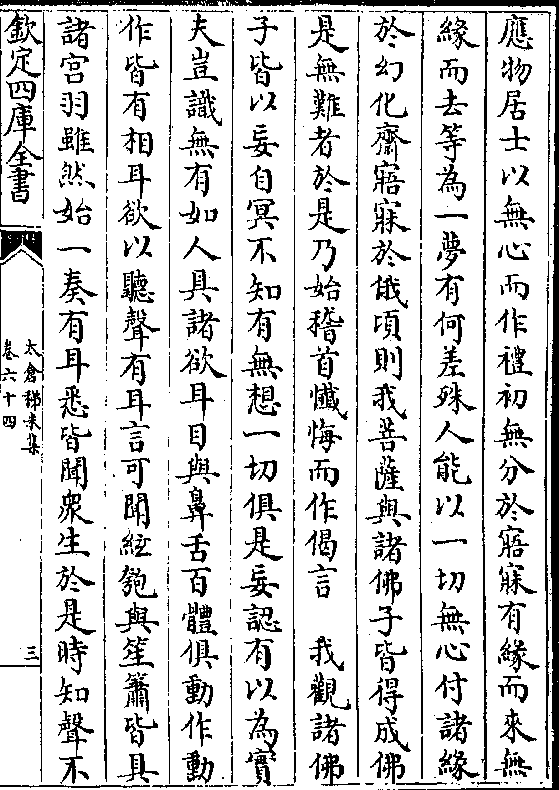 應物居士以無心而作禮初無分於寤寐有緣而來無
緣而去等為一夢有何差殊人能以一切無心付諸緣
於幻化齋寤寐於俄頃則我菩薩與諸佛子皆得成佛
是無難者於是乃始稽首懺悔而作偈言　我觀諸佛
子皆以妄自冥不知有無想一切俱是妄認有以為實
夫豈識無有如人具諸欲耳目與鼻舌百體俱動作動
作皆有相耳欲以聽聲有耳言可聞絃匏與笙簫皆具
諸宮羽雖然始一奏有耳悉皆聞衆生於是時知聲不
欽定四庫全書
太倉稊米集
卷六十四
三